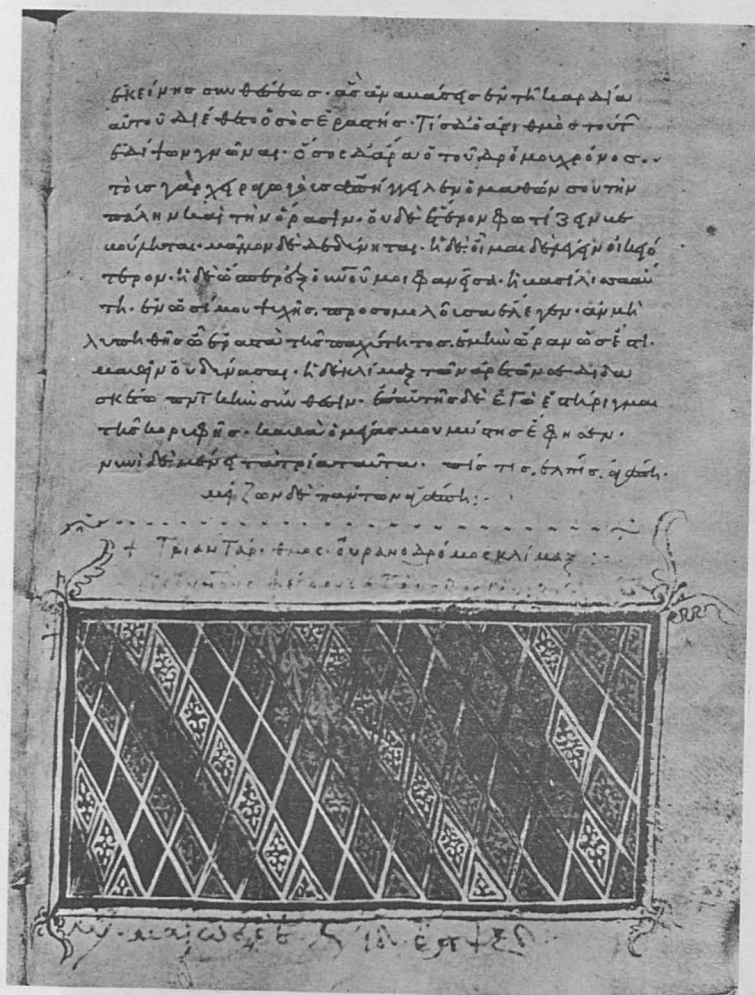 ἐκείνης συνθέσεως · ἃς ἀναβάσεις ἐν τῇ καρδία
αὐτοῦ διέθετο ὁ σὸς ἐραστής · τίς δὲ ὁ ἀριθμὸς τούτων
ἐδίψων γνῶναι · πόσος δ' ἄρα ὁ τοῦ δρόμου χρόνος ·
τοῖς γὰρ χειραγωγοῖς ἀπήγγειλεν ὁ μαθών σου τὴν
πάλην καὶ τὴν ὅρασιν · οὐδὲ ἕτερον φωτίζειν βε
βούληται · μᾶλλον δὲ δεδύνηται · ἡ δὲ οἶμαι δὲ λέγειν οἰκειό
τερον · ἡ δὲ ὥσπερ ἐξ οὐνοῦ μοι φανεῖσα · ἡ βασίλισσα αὕ
τη · ἐν ὠσί μου ψυχῆς · προσομιλοῦσα ἔλεγεν · ἂν μὴ
λυθῆς ὦ ἐραστὰ τῆς παχύτητος · ἐμὴν ὥραν ὡς ἔστι ·
μαθεῖν οὐ δύνασαι · ἡ δὲ κλίμαξ τῶν ἀρετῶν σε διδα
σκέτω τὴν σύνθεσιν · ἐπ' αὐτῆς δὲ ἐγὼ ἐστήριγμαι
τῆς κορυφῆς · καθὰ ὁ μέγας μου μύστης ἔφησεν ·
νυνὶ δὲ μένει τὰ τρία ταῦτα · πίστις · ἐλπίς · ἀγάπη ·
μείζων δὲ πάντων ἡ ἀγάπη :
+ Τριαντάριθμος · οὐρανοδρόμος κλίμαξ :